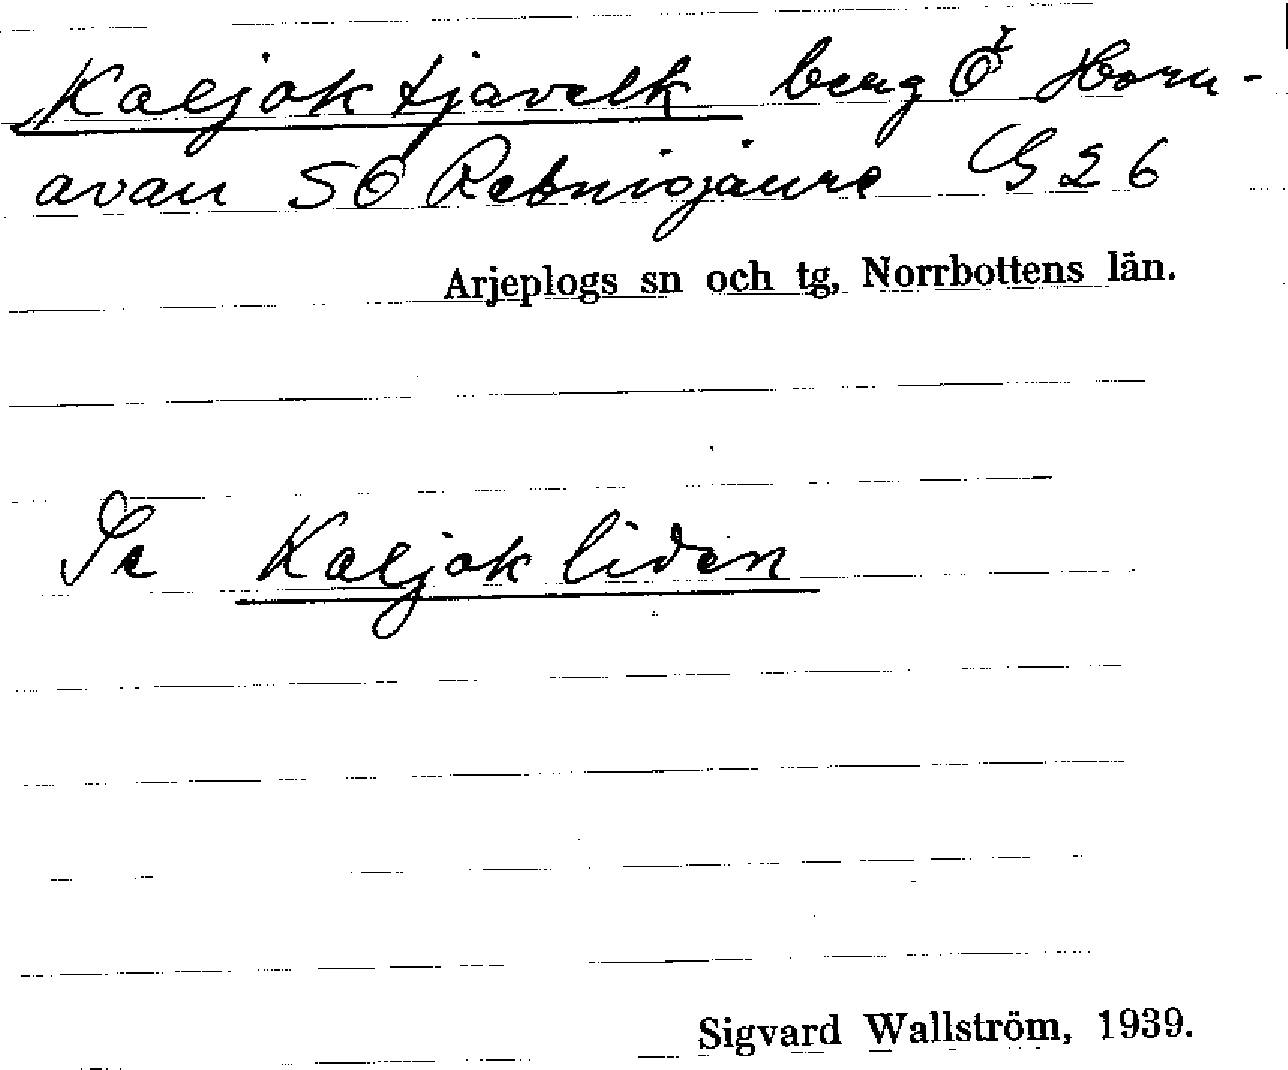 Kaljoktjavelk berg Ö Horn-
avan SO Rebnisjaure G 26
Arjeplogs sn och tg, Norrbottens län.
Se Kaljokliden
Sigvard Wallström, 1939.